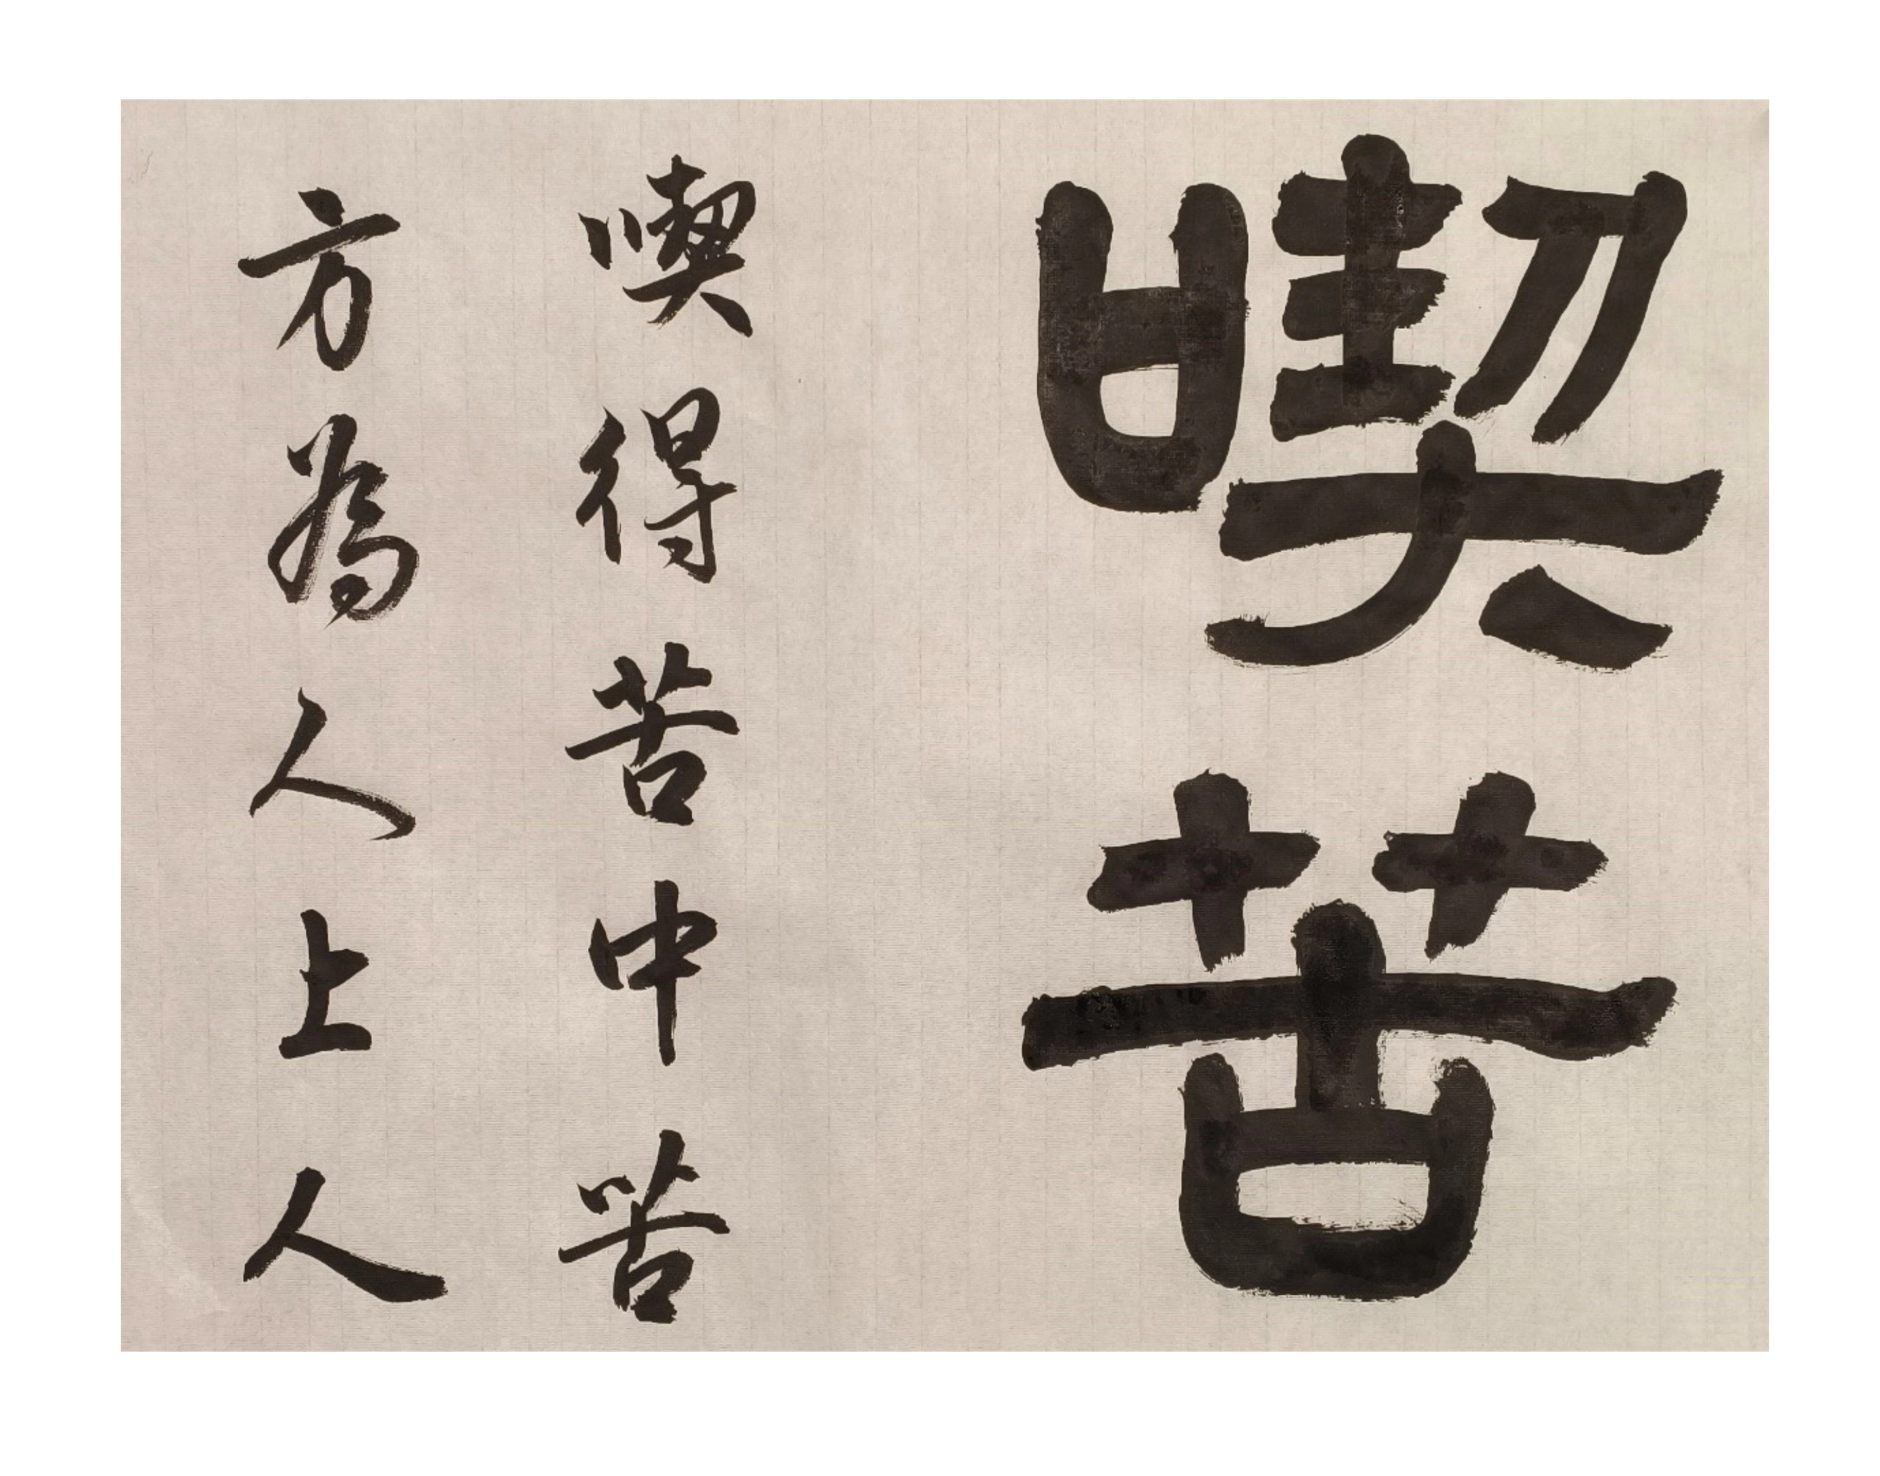 喫苦
喫得苦中苦
方為人上人